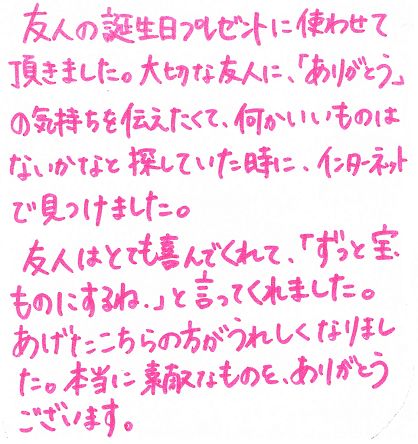 友人の誕生日プレゼントに使わせて
頂きました。大切な友人に、「ありがとう」
の気持ちを伝えたくて、何かいいものは
ないかなと探していた時に、インターネット
で見つけました。
友人はとても喜んでくれて、「ずっと宝
ものにするね.」と言ってくれました。
あげたこちらの方がうれしくなりまし
た。本当に素敵なものを、ありがとう
ございます。